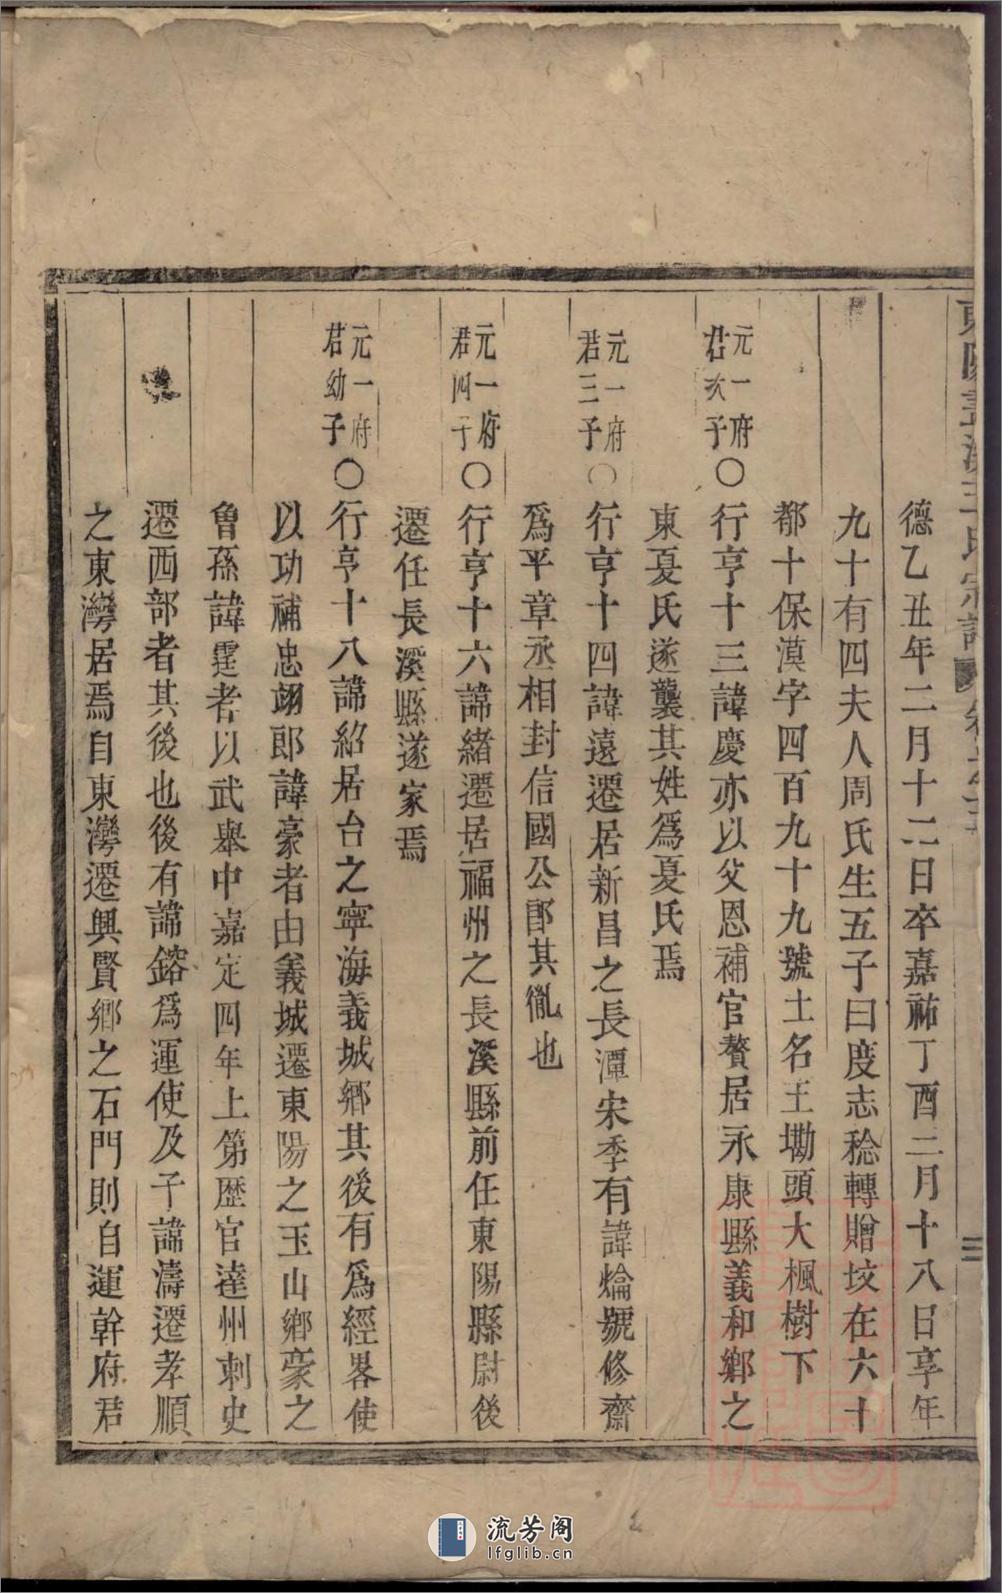 德乙丑年二月十二日卒嘉祐丁酉二月十八日享年
九十有四夫人周氏生五子曰度志稔轉贈墳在六十
都十保漠字四百九十九號土名王塸頭大楓樹下
元一府君次子○行亨十三諱慶亦以父恩補官贅居永康縣義和鄉之
東夏氏遂襲其姓爲夏氏焉
元一府君三子○行亨十四諱遠遷居新昌之長潭宋季有諱爚號修齋
爲平章丞相封信國公郎其胤也
元一府君四子○行亨十六諱緒遷居福州之長溪縣前任東陽縣尉後
遷任長溪縣遂家焉
元一府君幼子○行亨十八諱紹居台之寧海義城鄉其後有爲經畧使
以功補忠翊郎諱豪者由義城遷東陽之玉山鄉豪之
曾孫諱霆者以武舉中嘉定四年上第歷官達州刺史
遷西部者其後也後有諱鎔爲運使及子諱濤遷孝順
之東灣居焉自東灣遷興賢鄉之石門則自運幹府君
流芳阁
lfglib.cn